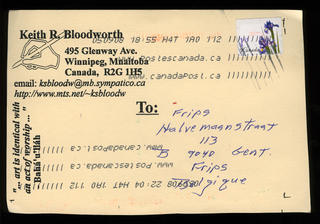 Keith R. Bloodworth
495 Glenway Ave.
Winnipeg, Manitoba
Canada, R2G 1H5
email: ksbloodw@mb.sympatico.ca
http://www.mts.net/~ksbloodw
"... art is identical with
an act of worship ..."
Bahá'u'lláh
05/09/08 18:55 H4T 1A0 112
www.postescanada.ca
www.canadapost.ca
To:
Frips
Halvemaanstraat
113
B 9040 Gent.
Frips
Belgique
www.canadapost.ca
www.postescanada.ca
22:04 H4T 1A0 112